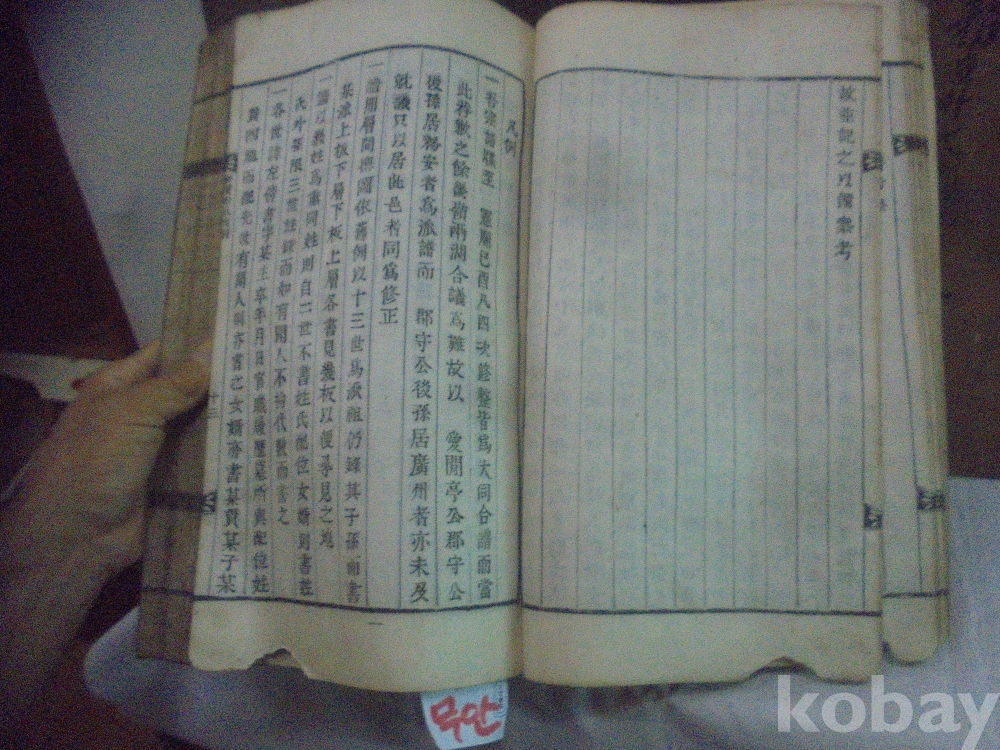 故並記之以備參考
凡例
一吾宗譜牒至 憲廟己酉凡四次修整皆爲大同合譜而當
此再數之餘後尙兩湖合議爲難故以 愛閒亭公郡守公
後孫居務安者爲派譜而 郡守公後孫居廣州者亦未及
就議只以居此邑者同爲修正
一譜期層間 圖依舊例以十三世爲派祖仍錄其子孫而書
某派上板下層下板上層各書見幾板以便尋見之地
一譜以幾姓爲重同姓則自二世不書姓氏配位女婿則書姓
氏外 限三世 錄而如有聞人不拘代數而書之
一各世諱左傍書字某生卒年月日官職履歷墓所與配位姓
貫四祖而配先 有聞人則亦書之女婿亦書某貫某子某
十二
무안
kobay